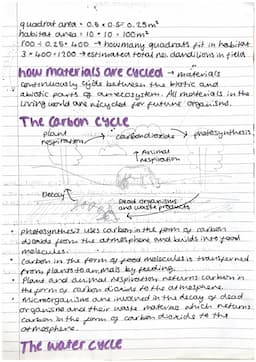 quadrat area = 0.5 × 0.5 = 0.25m²
habitat area = 10 × 10 = 100m²
100 ÷ 0.25 = 400 → how many quadrats fit in habitat
3 × 400 = 1200 → estimated total no. dandilions in field
how materials are cycled → materials
continuously cycle between the biotic and
abiotic parts of an ecosystem. All materials in the
living world are recycled for future organisms.
The Carbon Cycle
plant respiration
carbon dioxide
photosynthesis
↑ Animal respiration
Decay
Dead organisms and waste products
• photosynthesis uses carbon in the form of carbon
dioxide from the atmosphere and builds into food
molecules.
• Carbon in the form of food molecules is transferred
from plants to animals by feeding.
• Plant and animal respiration returns carbon in
the form of carbon dioxide to the atmosphere.
• Microorganisms are involved in the decay of dead
organisms and their waste material which returns
carbon in the form of carbon dioxide to the
atmosphere.
The water cycle